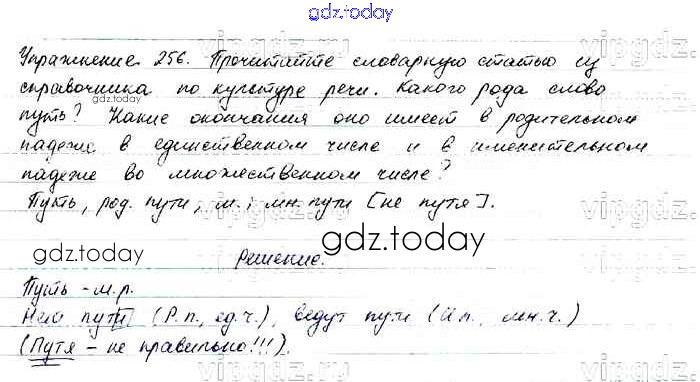 gdz.today
vipgdz.ru
Упражнение 256. Прочитайте словарную статью из
справочника по культуре речи. Какого рода слово
gdz.today
путь? Какие окончания оно имеет в родительном
падеже в единственном числе и в именительном
падеже во множественном числе?
Путь, род. пути, м.; мн. пути [не путя].
vipgdz.ru
gdz.today
gdz.today
Решение.
Путь - м.р.
Нет пути (Р.п., ед.ч.), ведут пути (И.п., мн.ч.)
(Путя - не правильно!!!).
vipgdz.ru